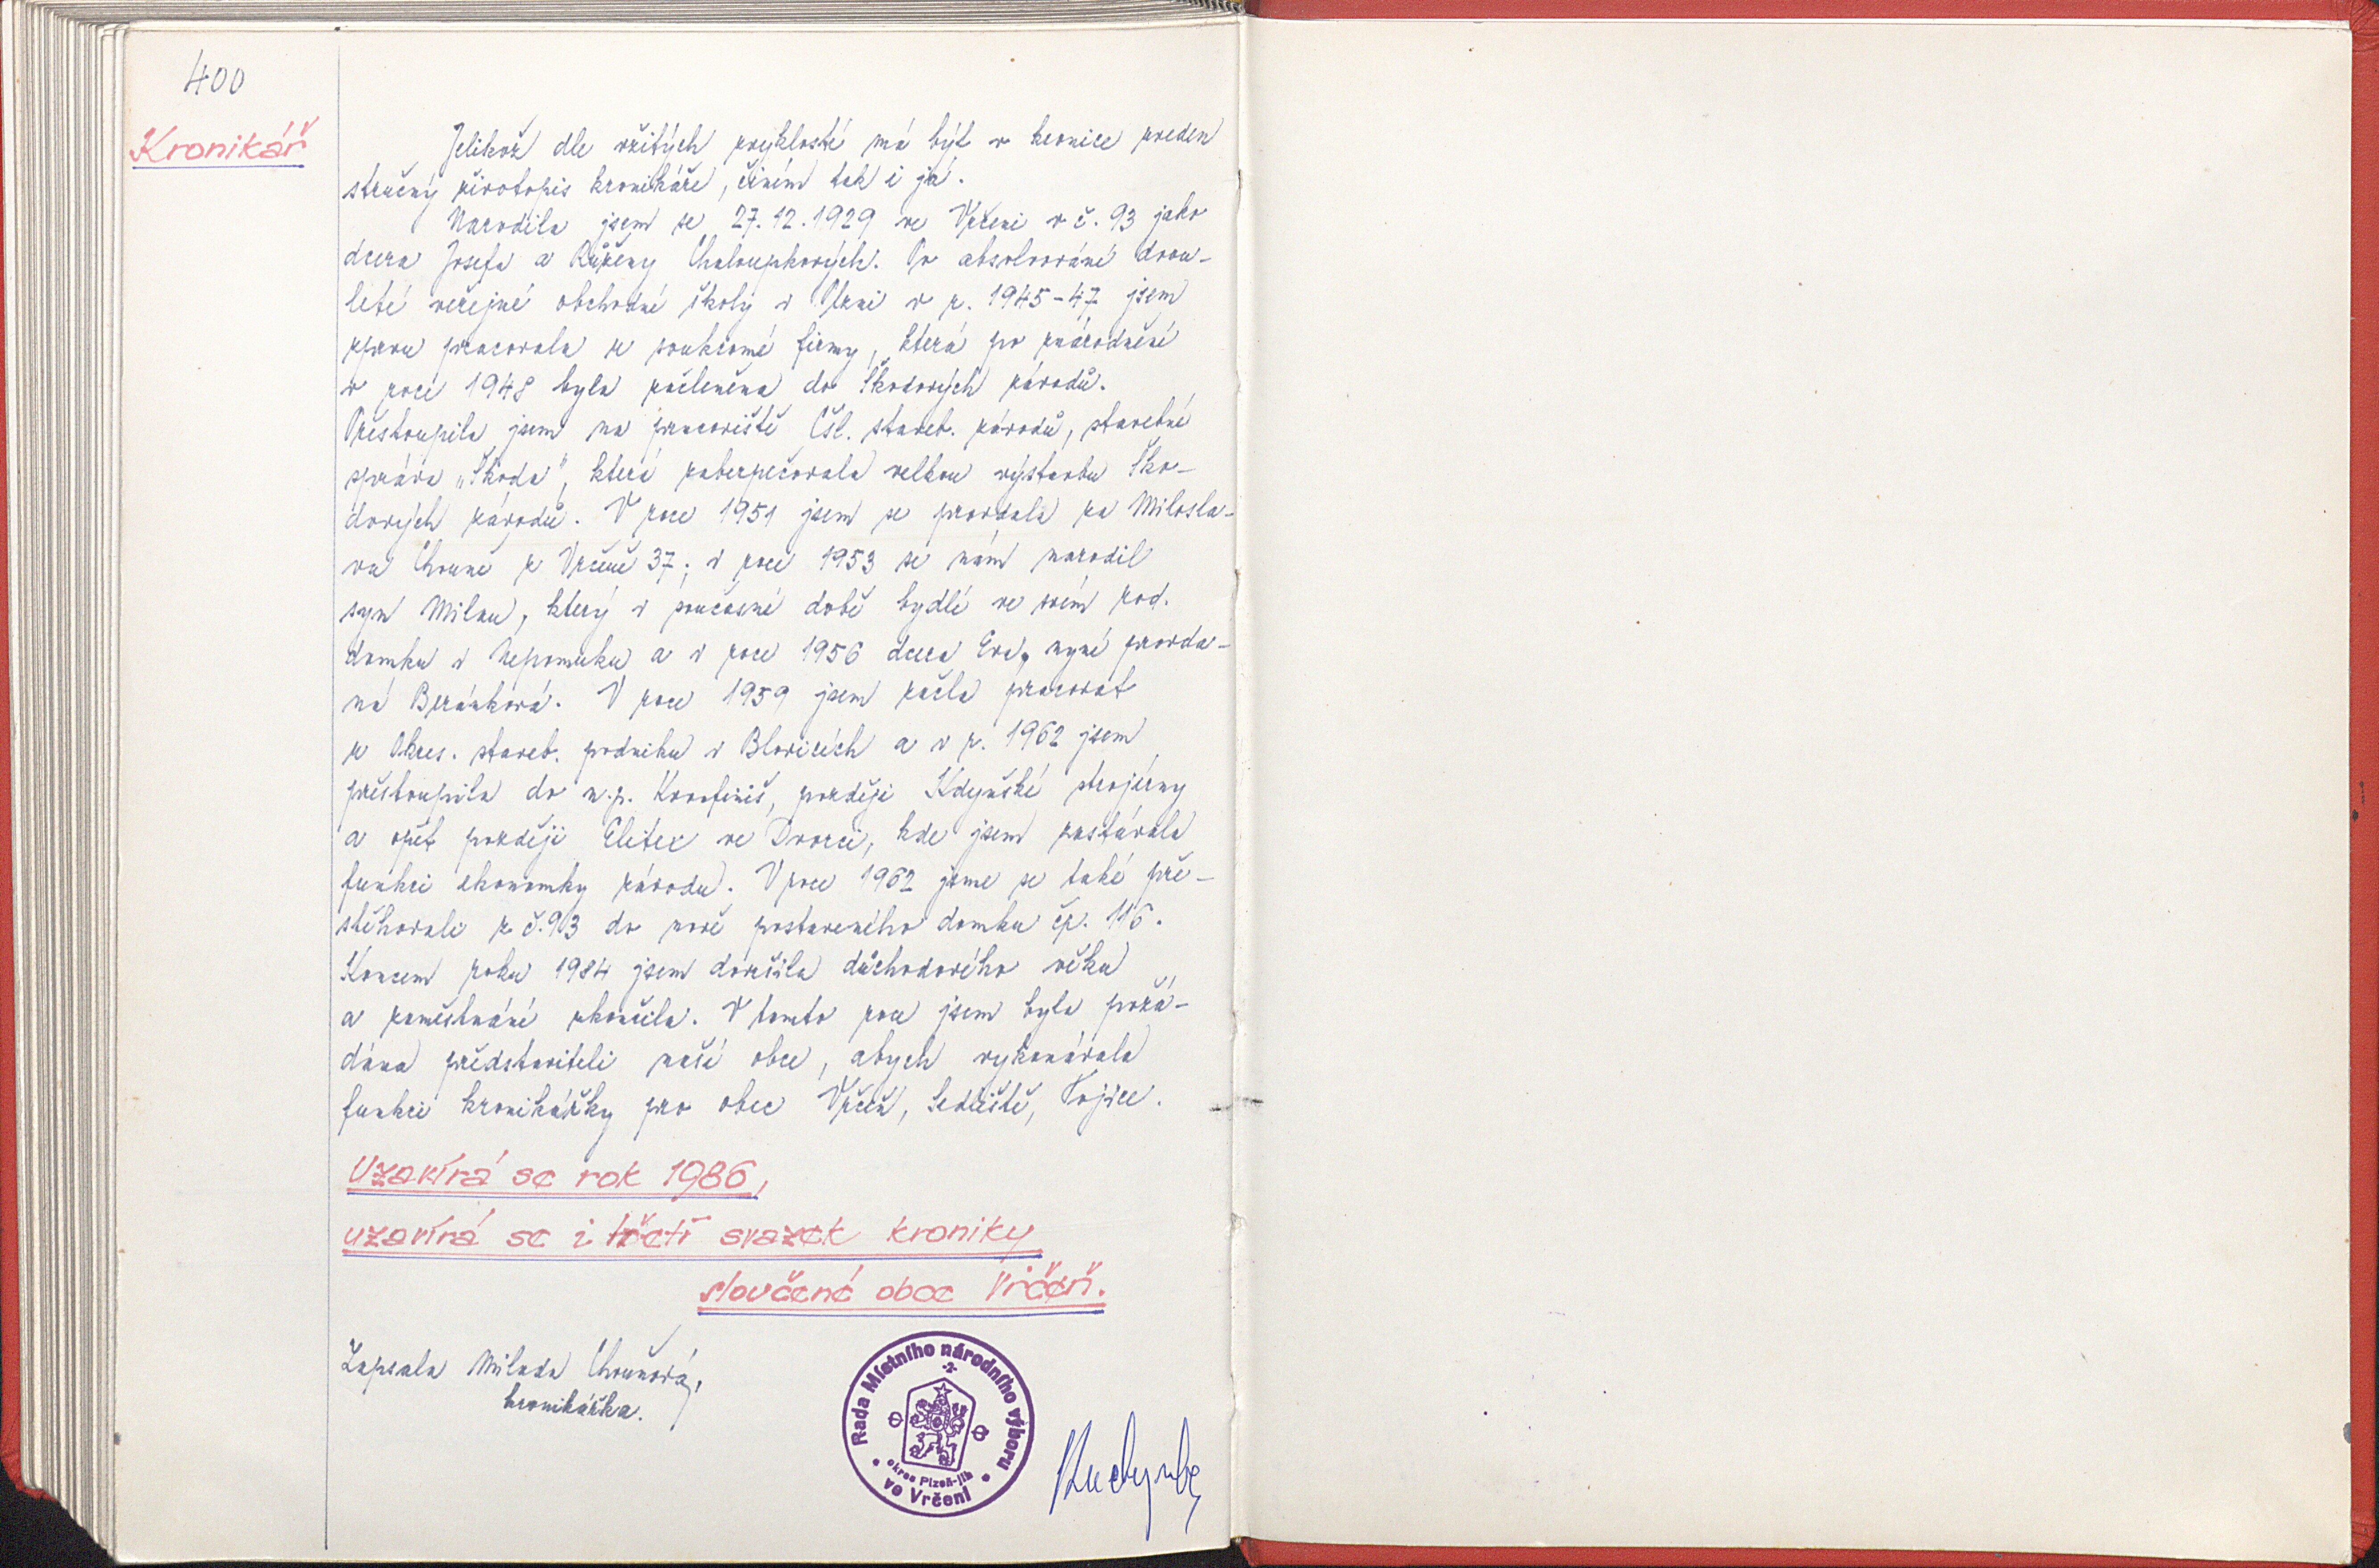 400
Kronikář
Jelikož dle vžitých zvyklostí má být v kronice uveden
stručný životopis kronikáře, činím tak i já.
Narodila jsem se 27.12.1929 ve Vrčeni v č. 93 jako
dcera Josefa a Růženy Chaloupkových. Po absolvování dvou-
leté veřejné obchodní školy v Plzni v r. 1945-47 jsem
zprvu pracovala u soukromé firmy, která po znárodnění
v roce 1948 byla začleněna do Škodových závodů.
Přestoupila jsem na pracoviště Čsl. staveb. závodů, stavební
správa „Škoda", která zabezpečovala velkou výstavbu Ško-
dových závodů. V roce 1951 jsem se provdala za Milosla-
va Chouně z Vrčeně 37; v roce 1953 se nám narodil
syn Milan, který v současné době bydlí ve svém rod.
domku v Nepomuku a v roce 1956 dcera Eva, nyní provda-
ná Beránková. V roce 1959 jsem začla pracovat
u Okres. staveb. podniku v Blovicích a v r. 1962 jsem
přestoupila do n.p. Kovofiniš, později Kdyňské strojírny
a opět později Elitex ve Dvorci, kde jsem zastávala
funkci ekonomky závodu. V roce 1962 jsme se také pře-
stěhovali z č.93 do nově postaveného domku čp. 116.
Koncem roku 1984 jsem dovršila důchodového věku
a zaměstnání ukončila. V tomto roce jsem byla požá-
dána představiteli naší obce, abych vykonávala
funkci kronikářky pro obec Vrčeň, Sedliště, Vojice.
Uzavírá se rok 1986,
uzavírá se i třetí svazek kroniky
sloučené obce Vrčeň.
Zapsala Milada Chouňová,
kronikářka.
Rada Místního národního výboru
-2-
okres Plzeň-jih
ve Vrčeni